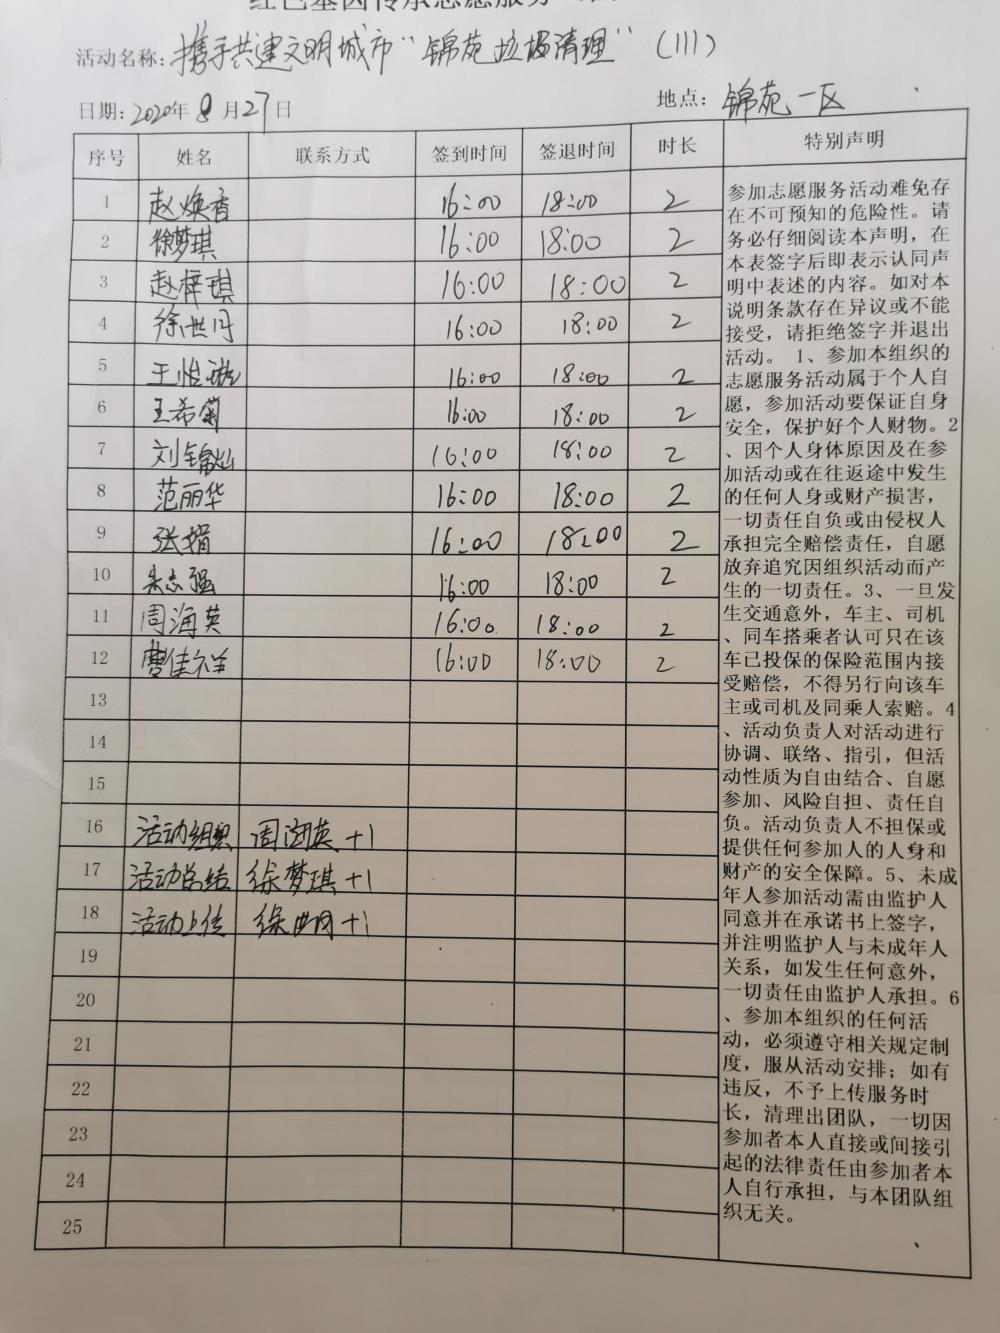 红色基因传承志愿服务
活动名称: 携手共建文明城市"锦苑垃圾清理" (111)
日期: 2020年 8月27日 地点: 锦苑一区
序号 姓名 联系方式 签到时间 签退时间 时长 特别声明
1 赵焕香 16:00 18:00 2
2 徐梦琪 16:00 18:00 2
3 赵梓琪 16:00 18:00 2
4 徐世月 16:00 18:00 2
5 王怡璇 16:00 18:00 2
6 王希菊 16:00 18:00 2
7 刘锦灿 16:00 18:00 2
8 范丽华 16:00 18:00 2
9 张娟 16:00 18:00 2
10 志强 16:00 18:00 2
11 周海英 16:00 18:00 2
12 曹佳祥 16:00 18:00 2
13
14
15
16 活动组织 周海英+1
17 活动总结 徐梦琪+1
18 活动上传 徐世月+1
19
20
21
22
23
24
25
参加志愿服务活动难免存
在不可预知的危险性。请
务必仔细阅读本声明，在
本表签字后即表示认同声
明中表述的内容。如对本
说明条款存在异议或不能
接受，请拒绝签字并退出
活动。 1、参加本组织的
志愿服务活动属于个人自
愿，参加活动要保证自身
安全，保护好个人财物。2
、因个人身体原因及在参
加活动或在往返途中发生
的任何人身或财产损害，
一切责任自负或由侵权人
承担完全赔偿责任，自愿
放弃追究因组织活动而产
生的一切责任。3、一旦发
生交通意外，车主、司机
、同车搭乘者认可只在该
车已投保的保险范围内接
受赔偿，不得另行向该车
主或司机及同乘人索赔。4
、活动负责人对活动进行
协调、联络、指引，但活
动性质为自由结合、自愿
参加、风险自担、责任自
负。活动负责人不担保或
提供任何参加人的人身和
财产的安全保障。5、未成
年人参加活动需由监护人
同意并在承诺书上签字，
并注明监护人与未成年人
关系，如发生任何意外，
一切责任由监护人承担。6
、参加本组织的任何活
动，必须遵守相关规定制
度，服从活动安排；如有
违反，不予上传服务时
长，清理出团队，一切因
参加者本人直接或间接引
起的法律责任由参加者本
人自行承担，与本团队组
织无关。